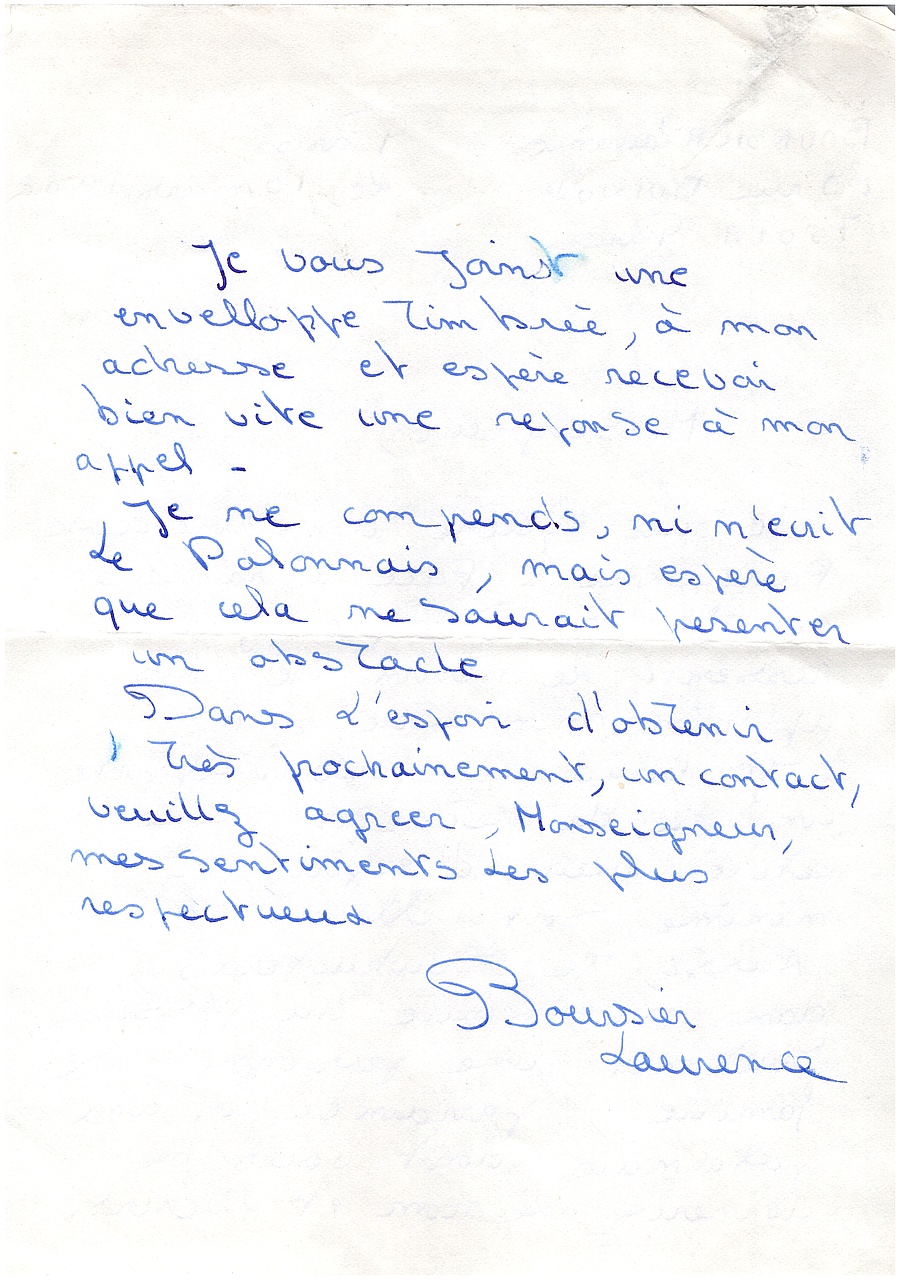 Je vous joinst une
envelloppe timbrée, à mon
adresse et espère recevoir
bien vite une reponse à mon
appel -
Je ne compends, ni n'ecrit
Le Polonnais, mais espère
que cela ne saurait pesenter
un obstacle
Dans L'espoir d'obtenir
très prochainement, un contact,
veuillez agreer, Monseigneur,
mes sentiments Les plus
respectueux
Boursier
Laurence